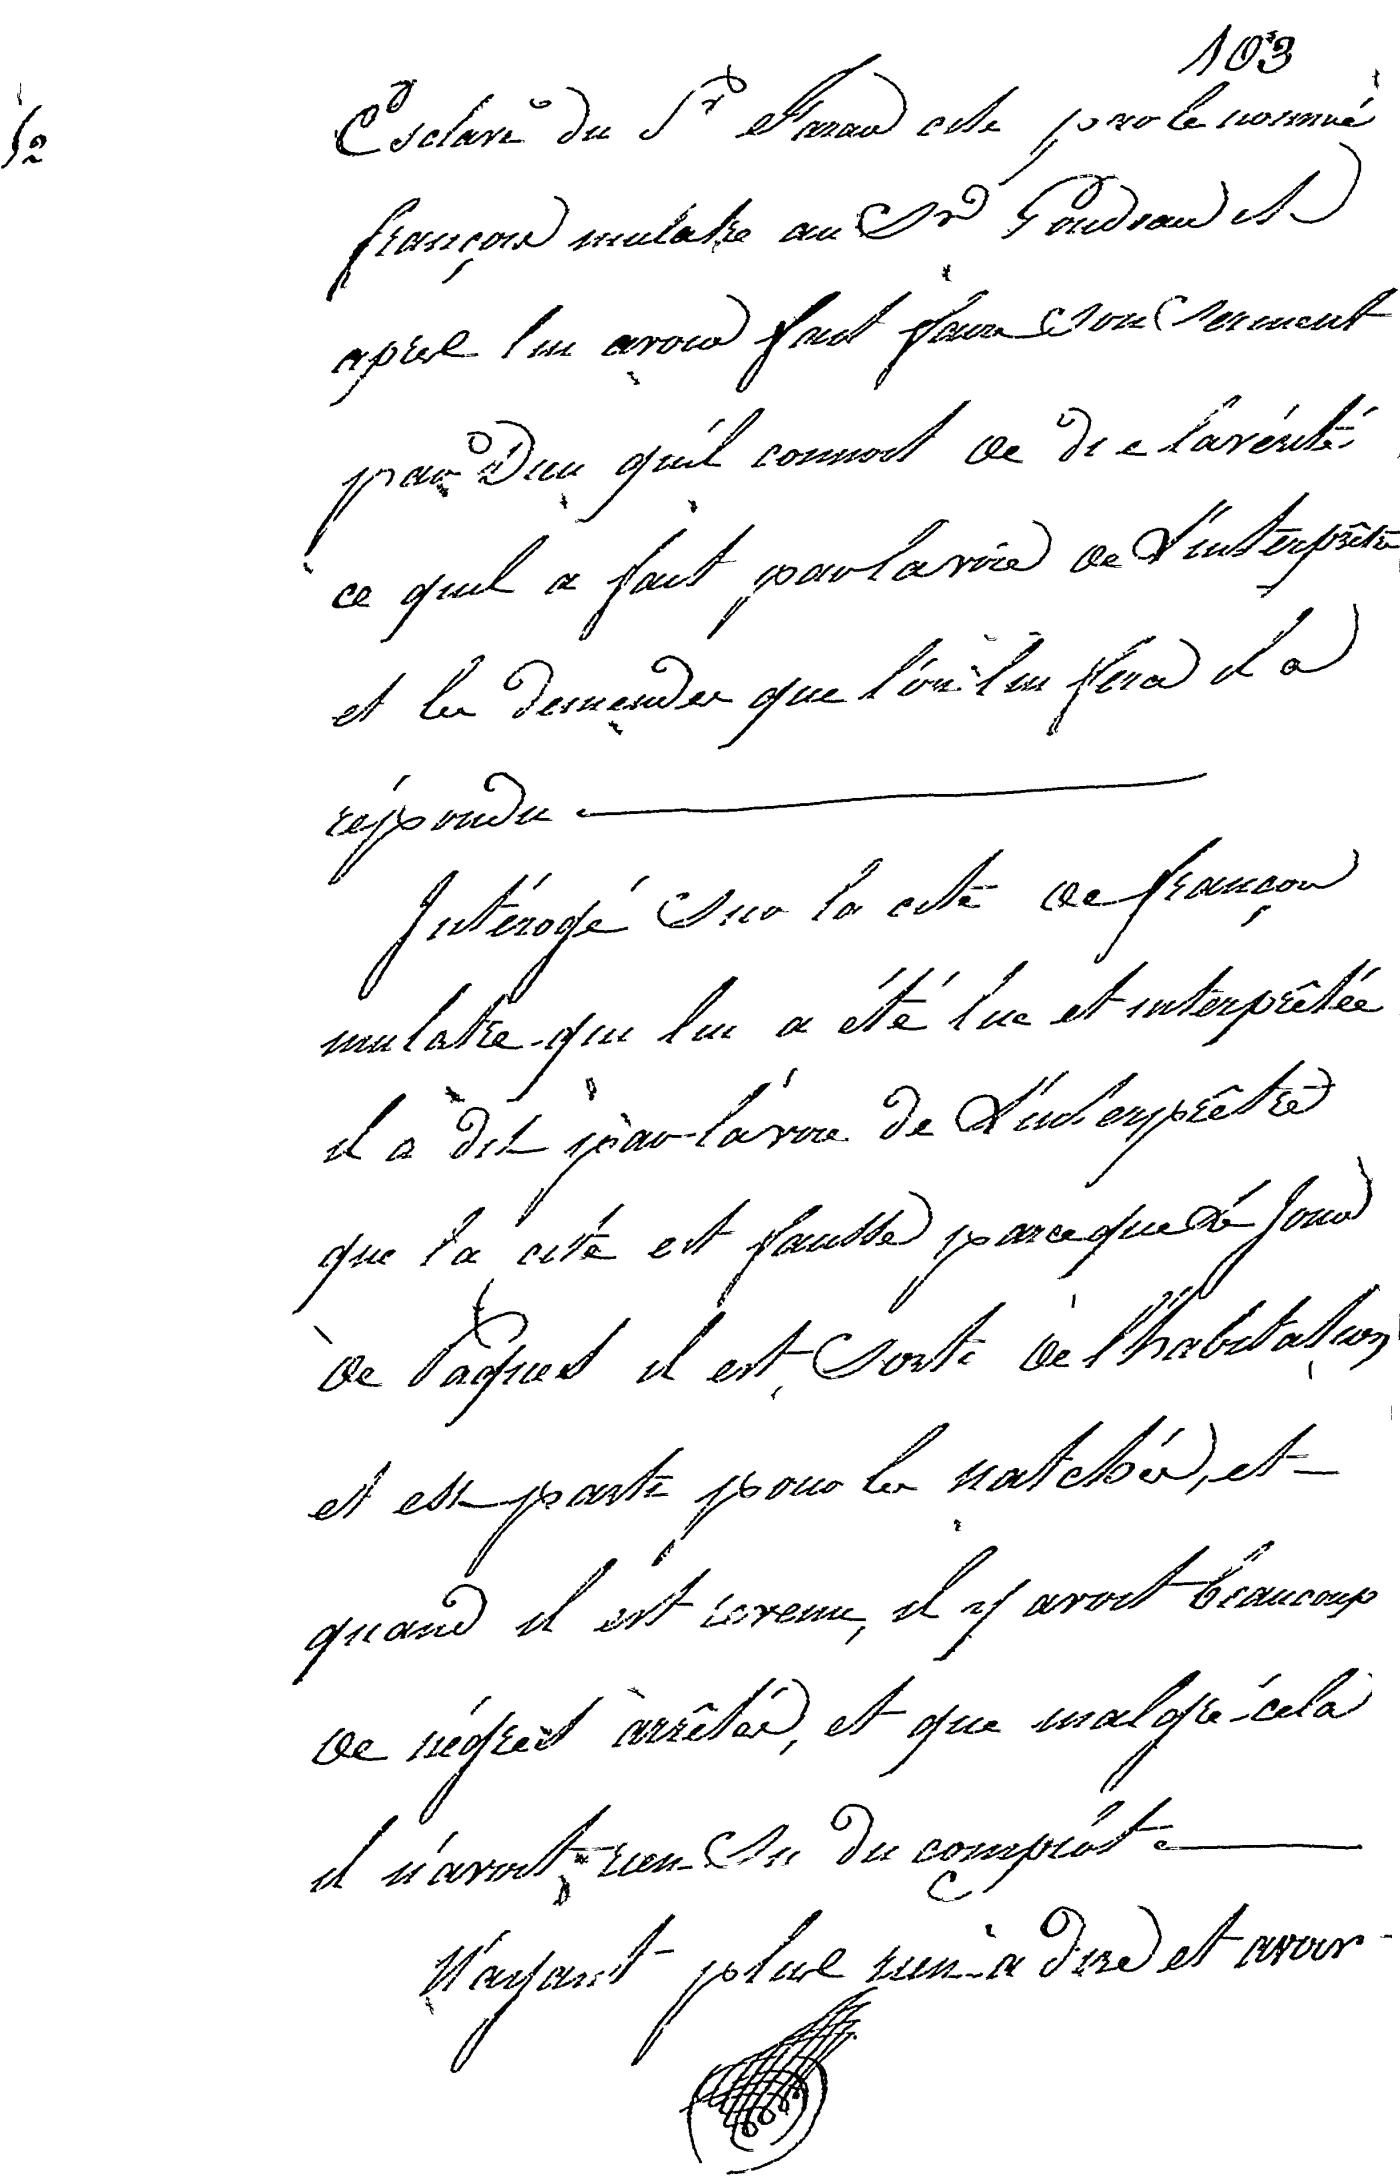 103
Esclave du Sr Farar cité par le nommé
françois mulatre au Sr Goudeau et
après lui avoir fait faire Son Serment
par Dieu qu'il connoit de dire la vérité
ce quil a fait par la voie de L'interprête
et les demandes que l'on lui fera il a
répondu
Intérogé Sur la cité de françois
mulatre qui lui a été lue et interprêtée
il a dit par la voie de L'interprêtre
que la cité est fausse parceque Le Jour
de Paques il est Sorti de l'habitation
et est parti pour les natchés, et
quand il est revenu, il y avoit beaucoup
de négres arrêtés, et que malgré cela
il n'avoit rien Su du complot
N'ayant plus rien a dire et avoir